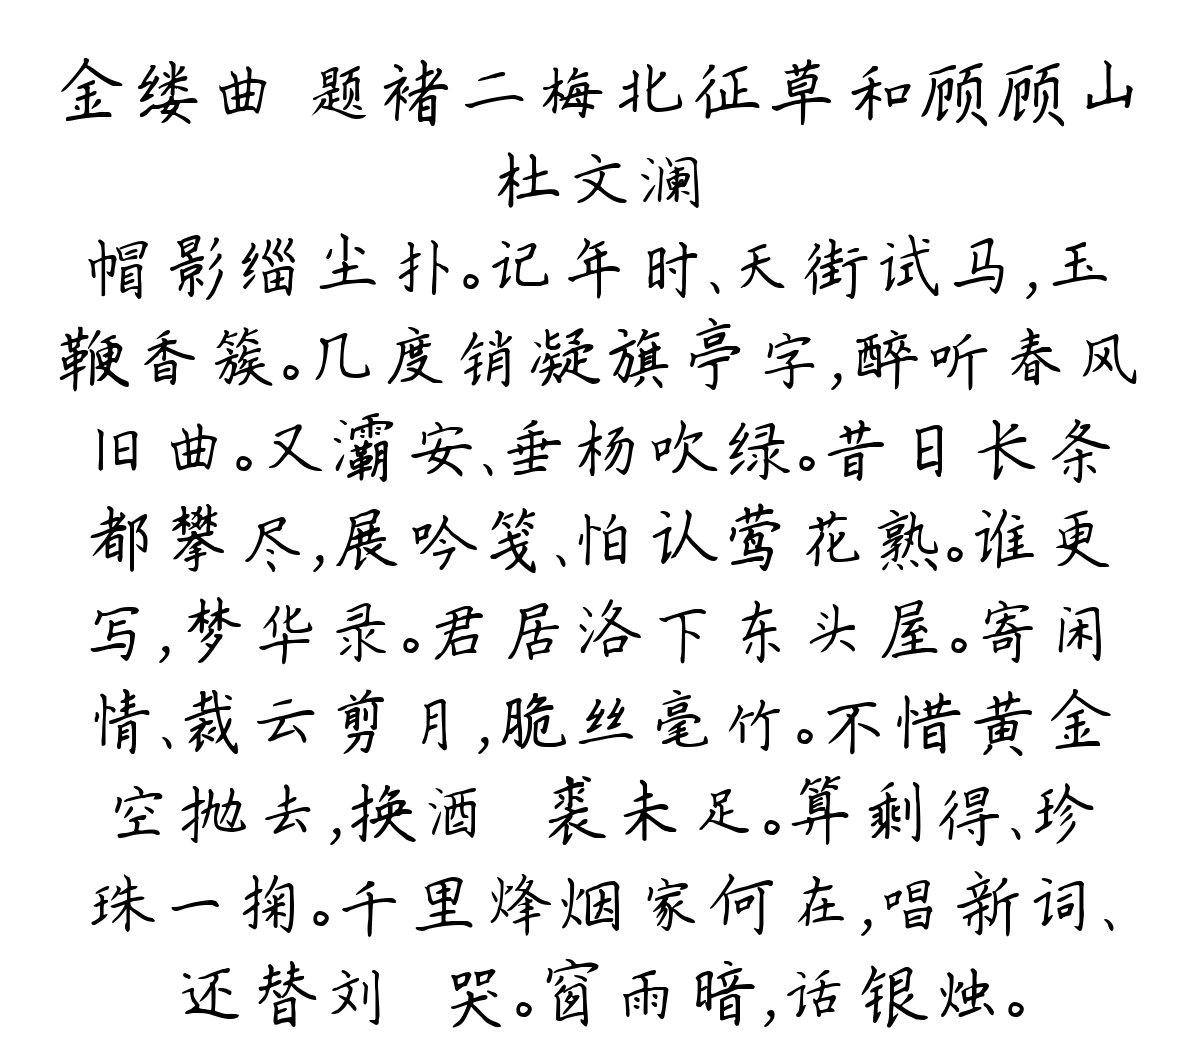 金缕曲 题褚二梅北征草和顾顾山
杜文澜
帽影缁尘扑。记年时、天街试马,玉
鞭香簇。几度销凝旗亭字,醉听春风
旧曲。又灞安、垂杨吹绿。昔日长条
都攀尽,展吟笺、怕认莺花熟。谁更
写,梦华录。君居洛下东头屋。寄闲
情、裁云剪月,脆丝毫竹。不惜黄金
空抛去,换酒 裘未足。算剩得、珍
珠一掬。千里烽烟家何在,唱新词、
还替刘 哭。窗雨暗,话银烛。